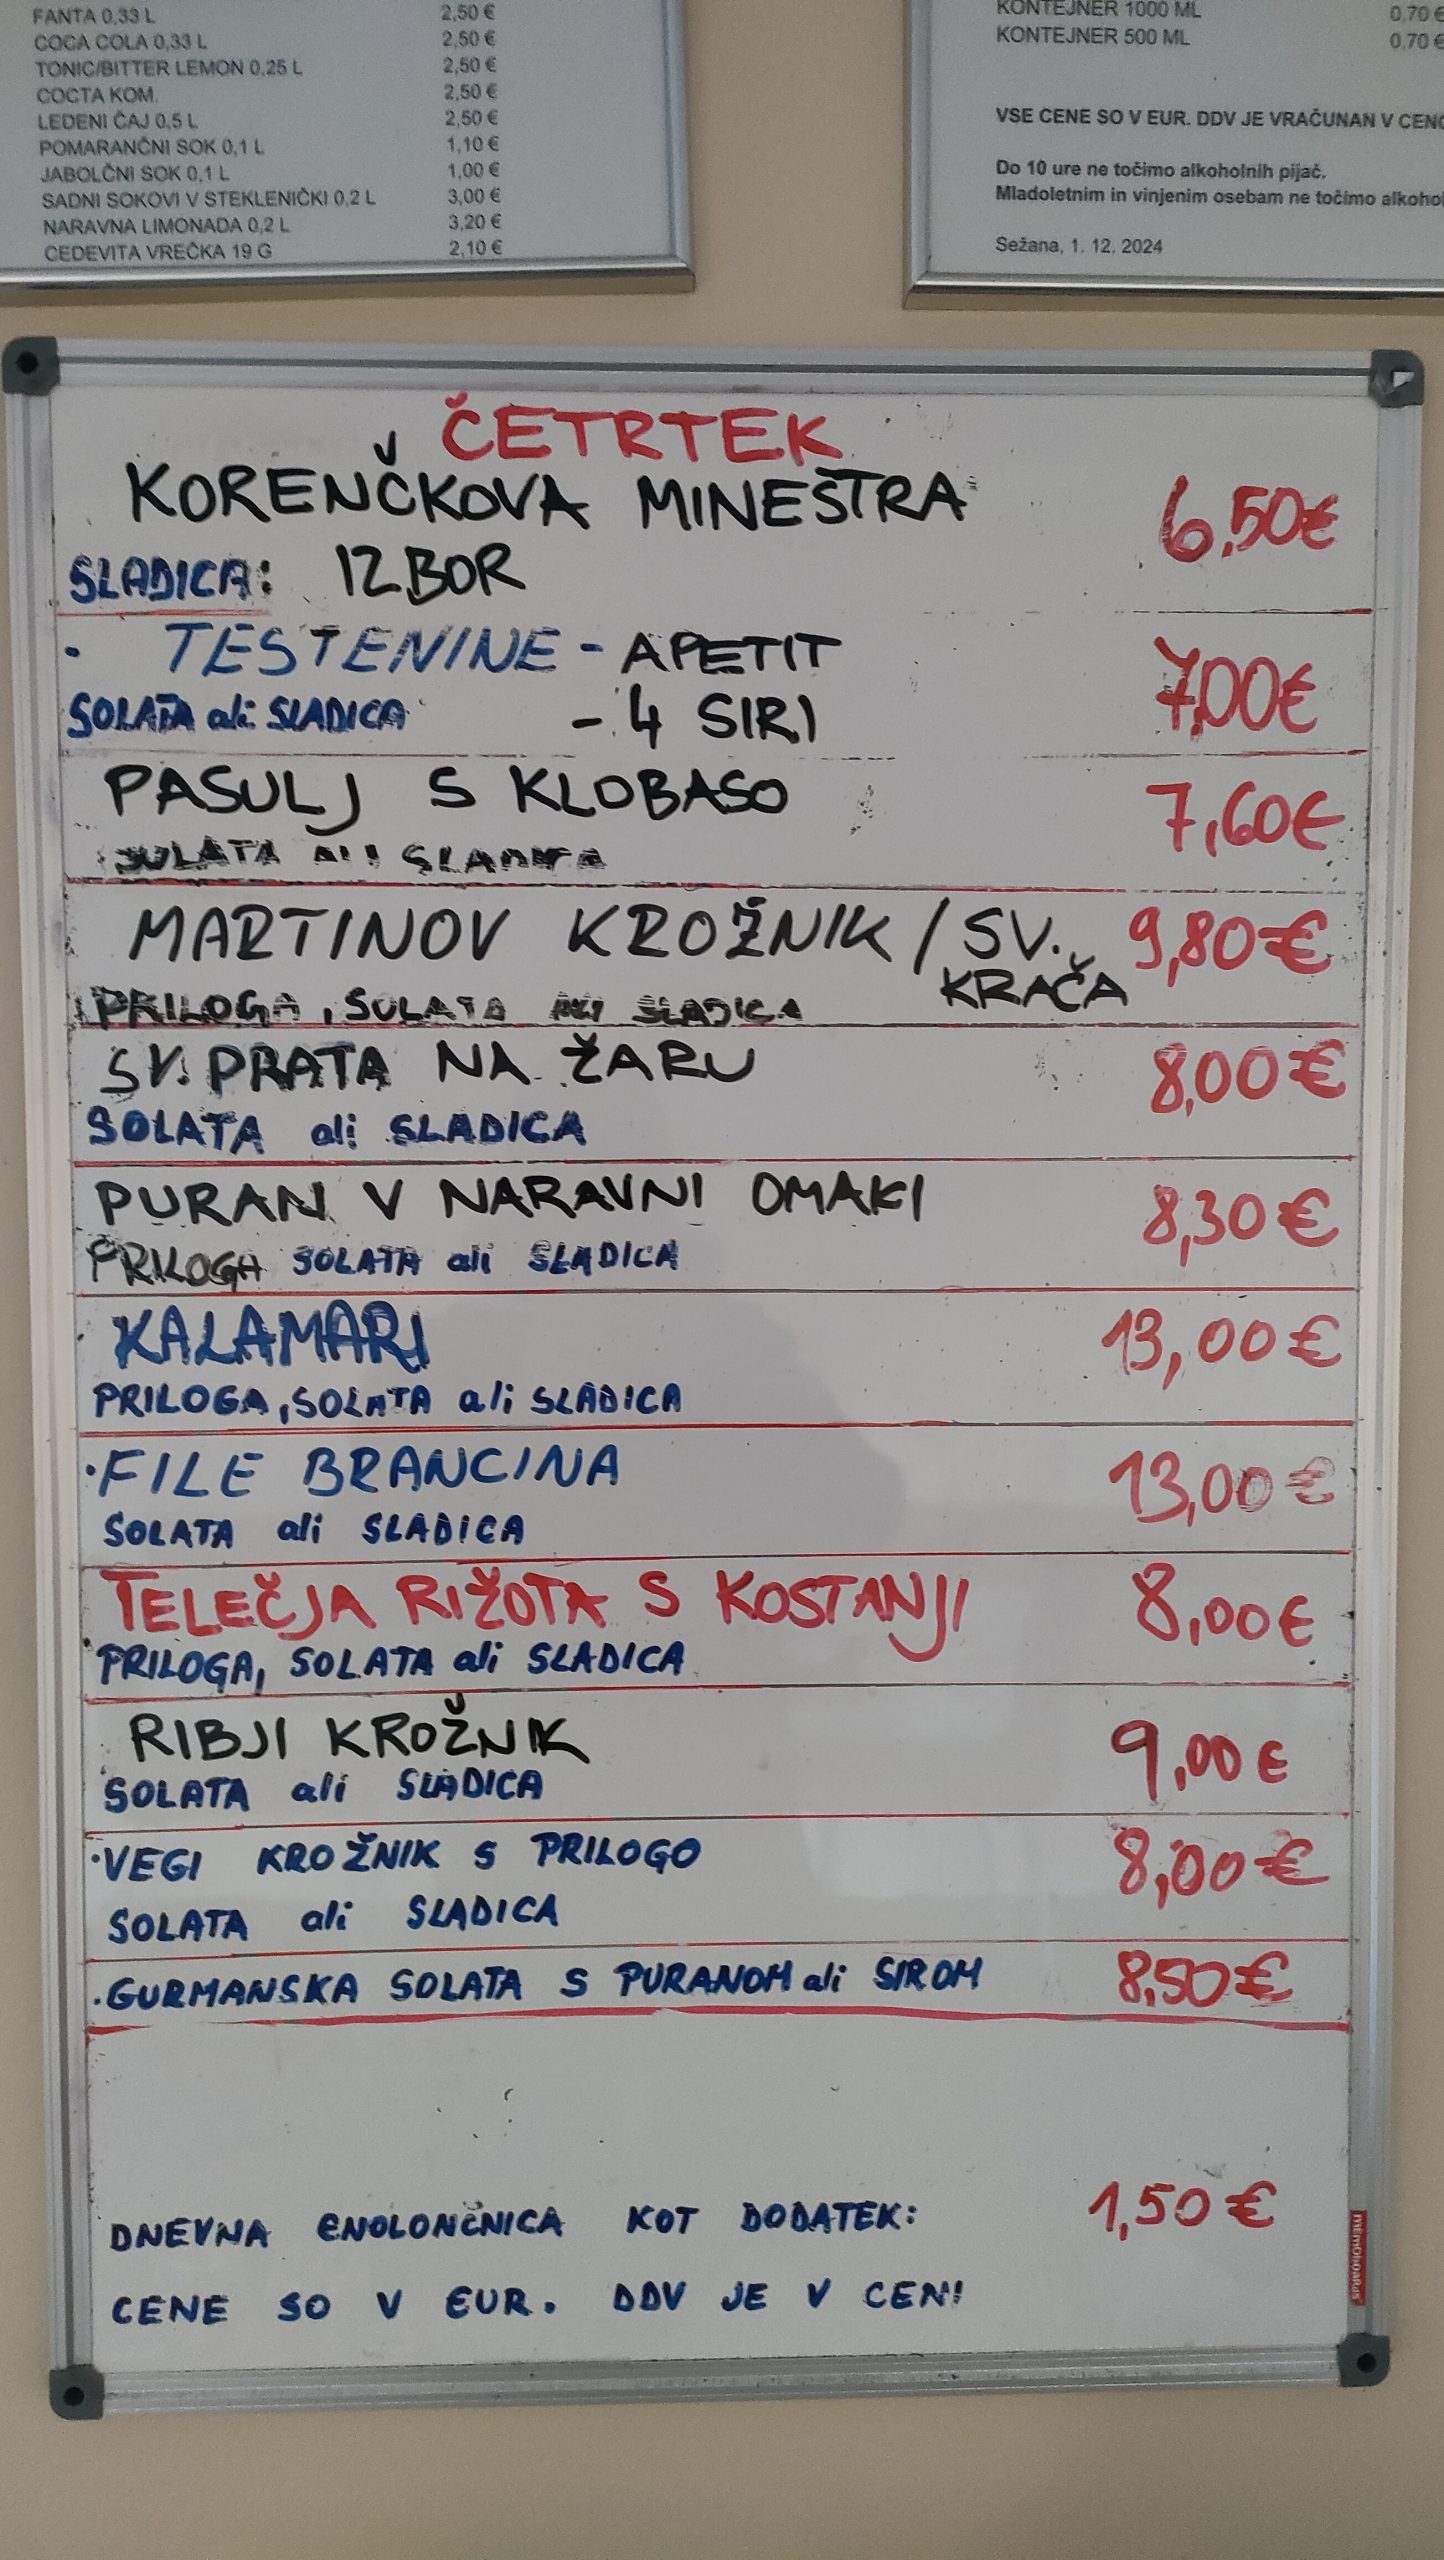 FANTA 0,33 L 2,50 €
COCA COLA 0,33 L 2,50 €
TONIC/BITTER LEMON 0,25 L 2,50 €
COCTA KOM. 2,50 €
LEDENI ČAJ 0,5 L 2,50 €
POMARANČNI SOK 0,1 L 1,10 €
JABOLČNI SOK 0,1 L 1,00 €
SADNI SOKOVI V STEKLENIČKI 0,2 L 3,00 €
NARAVNA LIMONADA 0,2 L 3,20 €
CEDEVITA VREČKA 19 G 2,10 €
KONTEJNER 1000 ML 0,70 €
KONTEJNER 500 ML 0,70 €
VSE CENE SO V EUR. DDV JE VRAČUNAN V CENO
Do 10 ure ne točimo alkoholnih pijač.
Mladoletnim in vinjenim osebam ne točimo alkohol
Sežana, 1. 12. 2024
ČETRTEK
KORENČKOVA MINEŠTRA 6,50€
SLADICA: IZBOR
· TESTENINE - APETIT 7,00€
SOLATA ali SLADICA - 4 SIRI
PASULJ S KLOBASO 7,60€
SOLATA ALI SLADICA
MARTINOV KROŽNIK / SV. KRAČA 9,80€
PRILOGA, SOLATA ALI SLADICA
SV. PRATA NA ŽARU 8,00€
SOLATA ali SLADICA
PURAN V NARAVNI OMAKI 8,30€
PRILOGA SOLATA ali SLADICA
KALAMARI 13,00€
PRILOGA, SOLATA ali SLADICA
· FILE BRANCINA 13,00€
SOLATA ali SLADICA
TELEČJA RIŽOTA S KOSTANJI 8,00€
PRILOGA, SOLATA ali SLADICA
RIBJI KROŽNIK 9,00€
SOLATA ali SLADICA
· VEGI KROŽNIK S PRILOGO 8,00€
SOLATA ali SLADICA
· GURMANSKA SOLATA S PURANOM ali SIROM 8,50€
DNEVNA ENOLONČNICA KOT DODATEK: 1,50€
CENE SO V EUR. DDV JE V CENI
memoboards